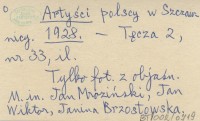 Artyści polscy w Szczaw
nicy. 1928. – Tęcza 2,
nr 33, il.
Tylko fot. z objaśn.
M. in. Jan Mroziński, Jan
Wiktor, Janina Brzostowska.